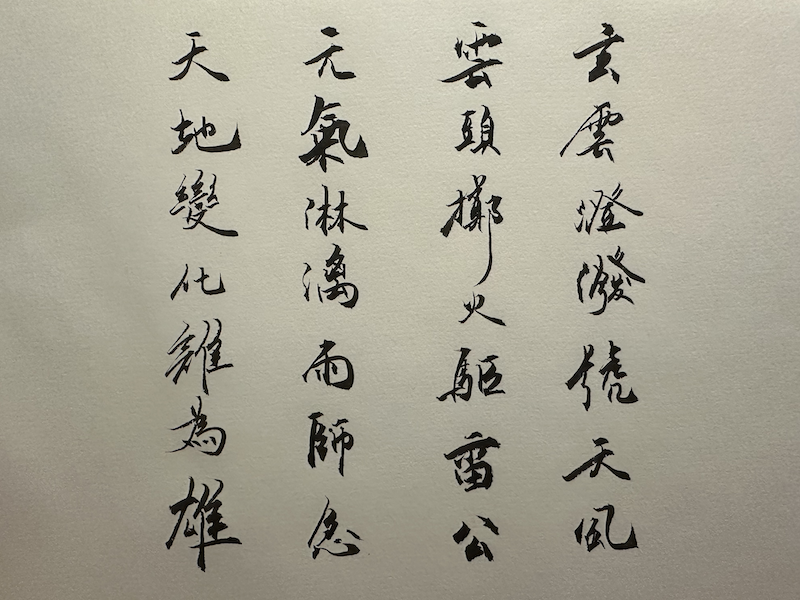 玄雲澄潑號天風
雲頭擲火驅雷公
元氣淋漓雨師急
天地變化誰為雄